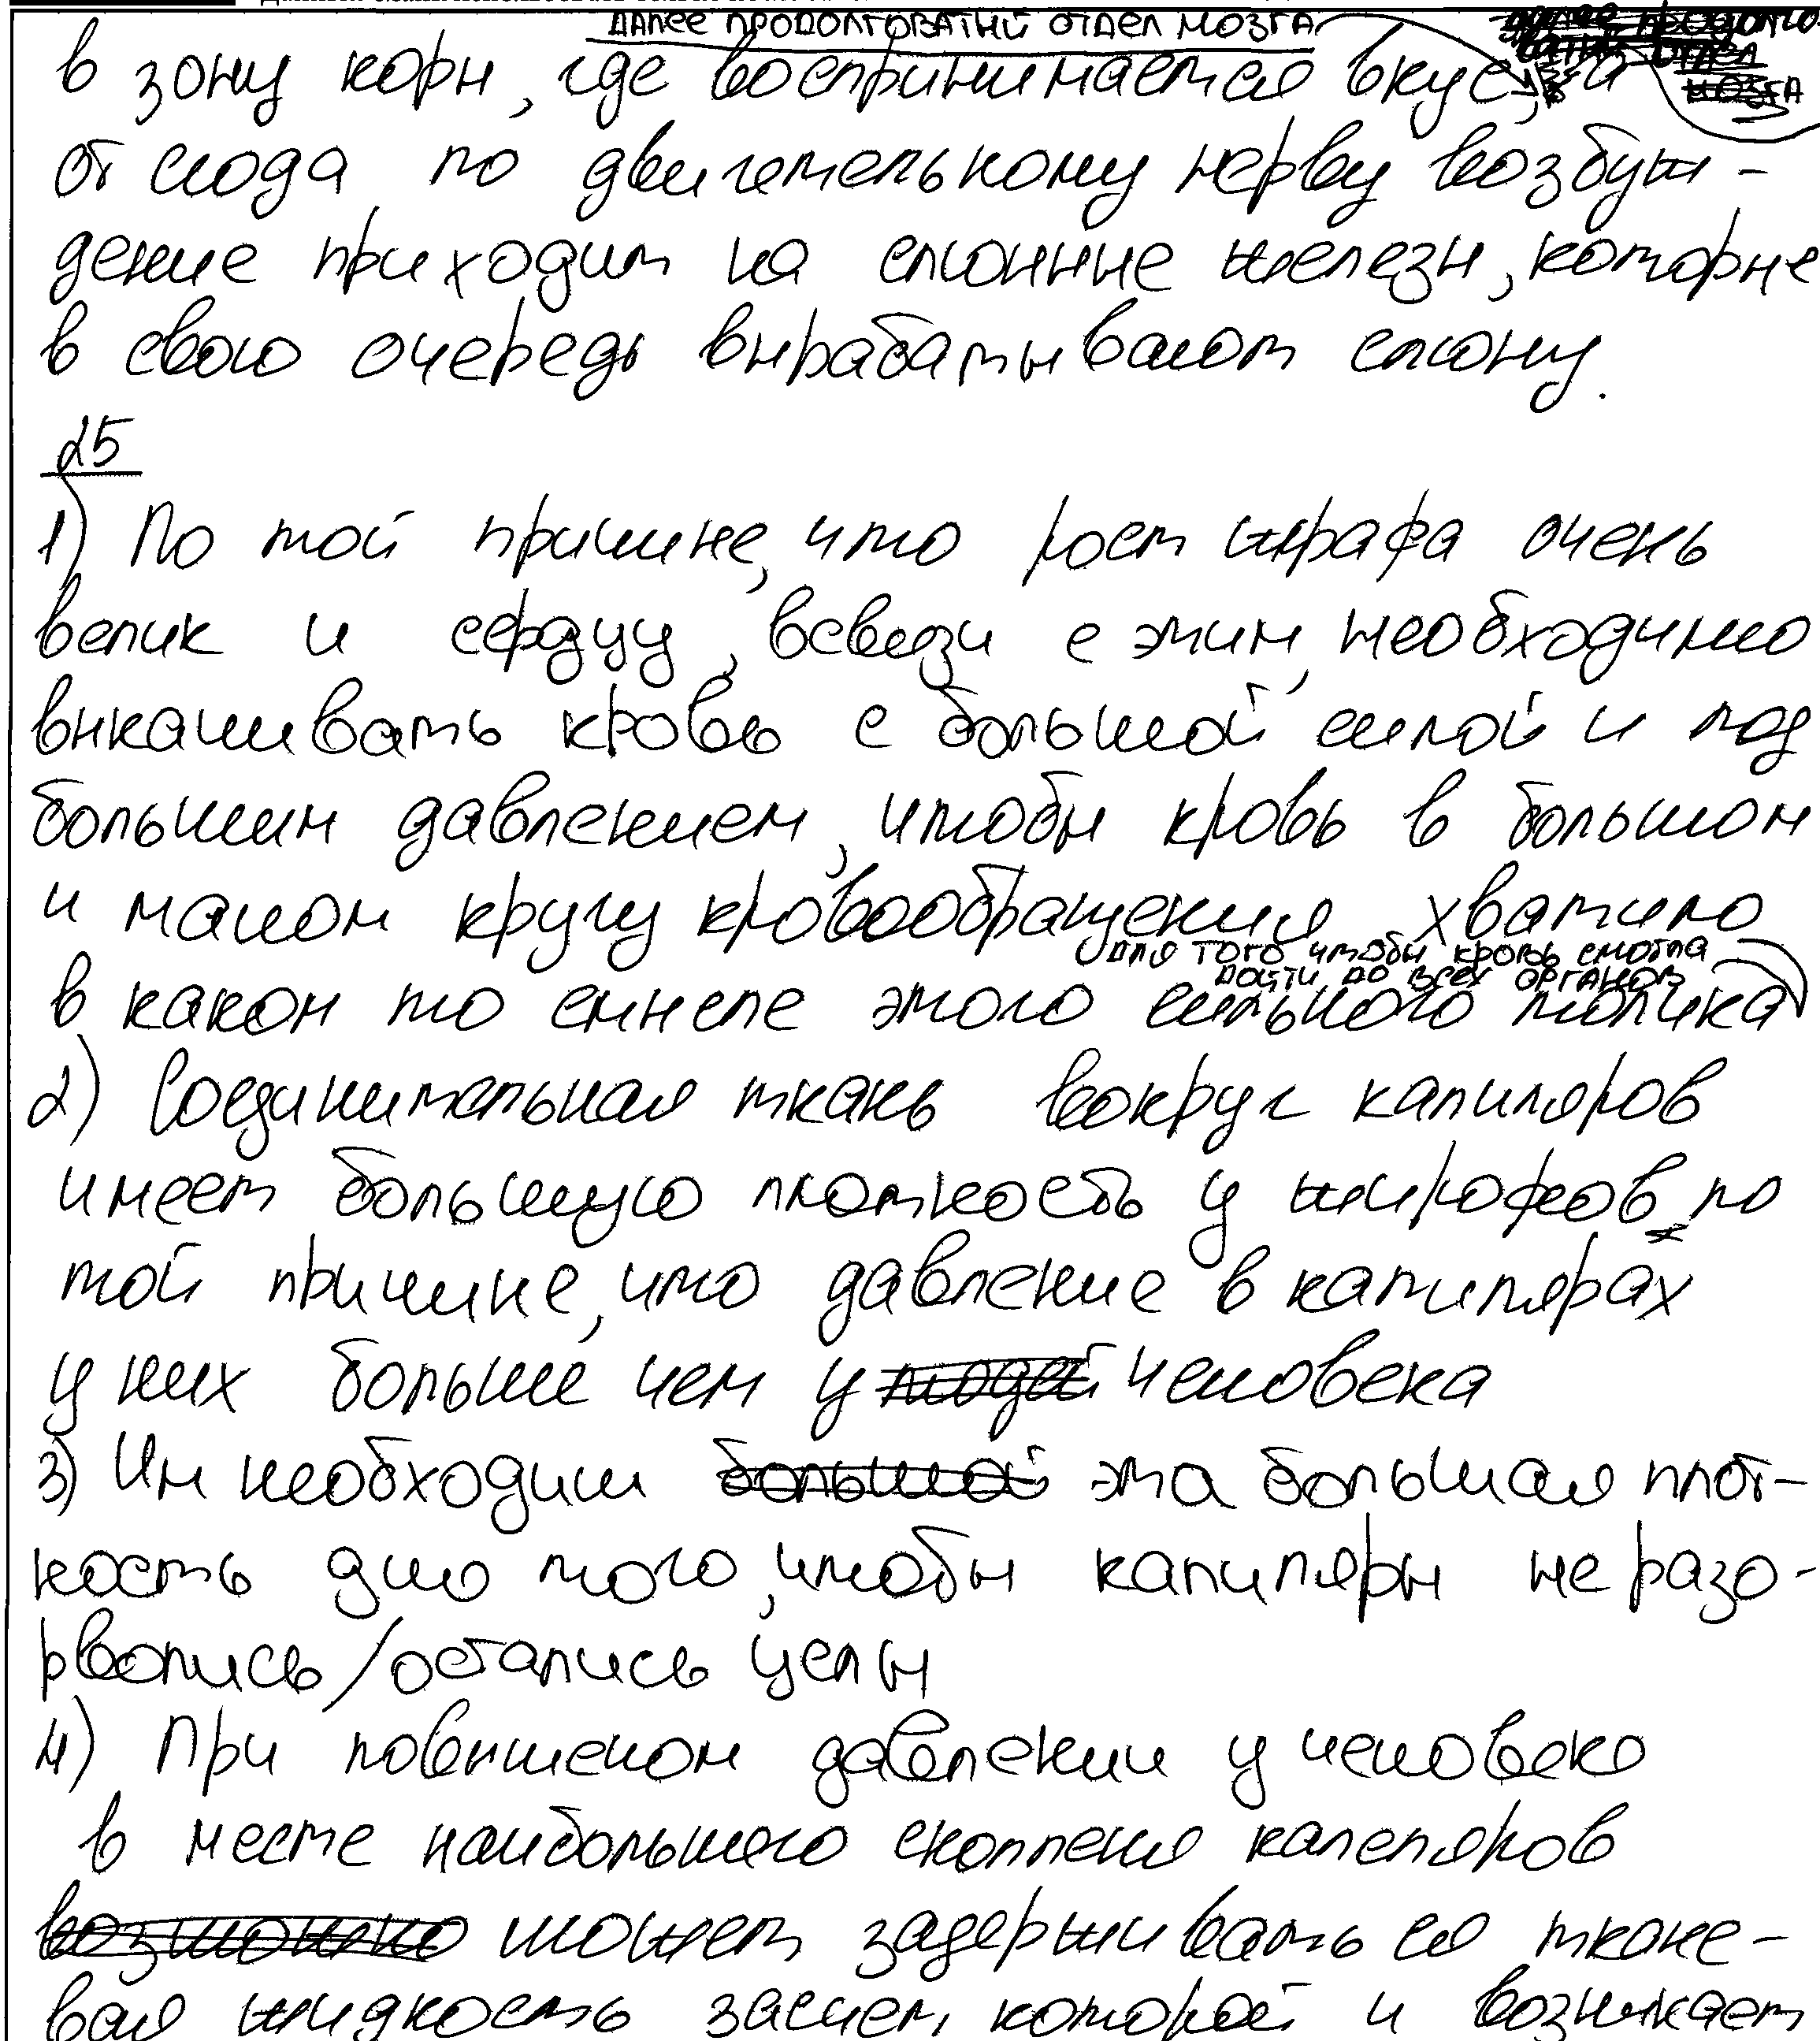 ДАЛЕЕ ПРОДОЛГОВАТЫЙ ОТДЕЛ МОЗГА
в зону коры, где воспринимается вкус, а
отсюда по двигательному нерву возбуж-
дение приходит на слюнные железы, которые
в свою очередь вырабатывают слюну.
25
1) По той причине, что рост жирафа очень
велик и сердцу, всвязи с этим, необходимо
выкачивать кровь с большой силой и под
большим давлением, чтобы кровь в большом
и малом кругу кровообращения хватило
для того чтобы кровь смогла
дойти до всех органов
в каком то смысле этого сильного толчка
2) Соединительная ткань вокруг капиляров
имеет большую плотность у жирофов по
той причине, что давление в капилярах
у них больше чем у людей человека
3) Им необходим большой эта большая плот-
ность для того, чтобы капиляры не разо-
рволись/остались целы
4) При повышеном давлении у человека
в месте наибольшего скопления капеляров
возможно может задерживаться ткане-
вая жидкость засчет, которой и возникает